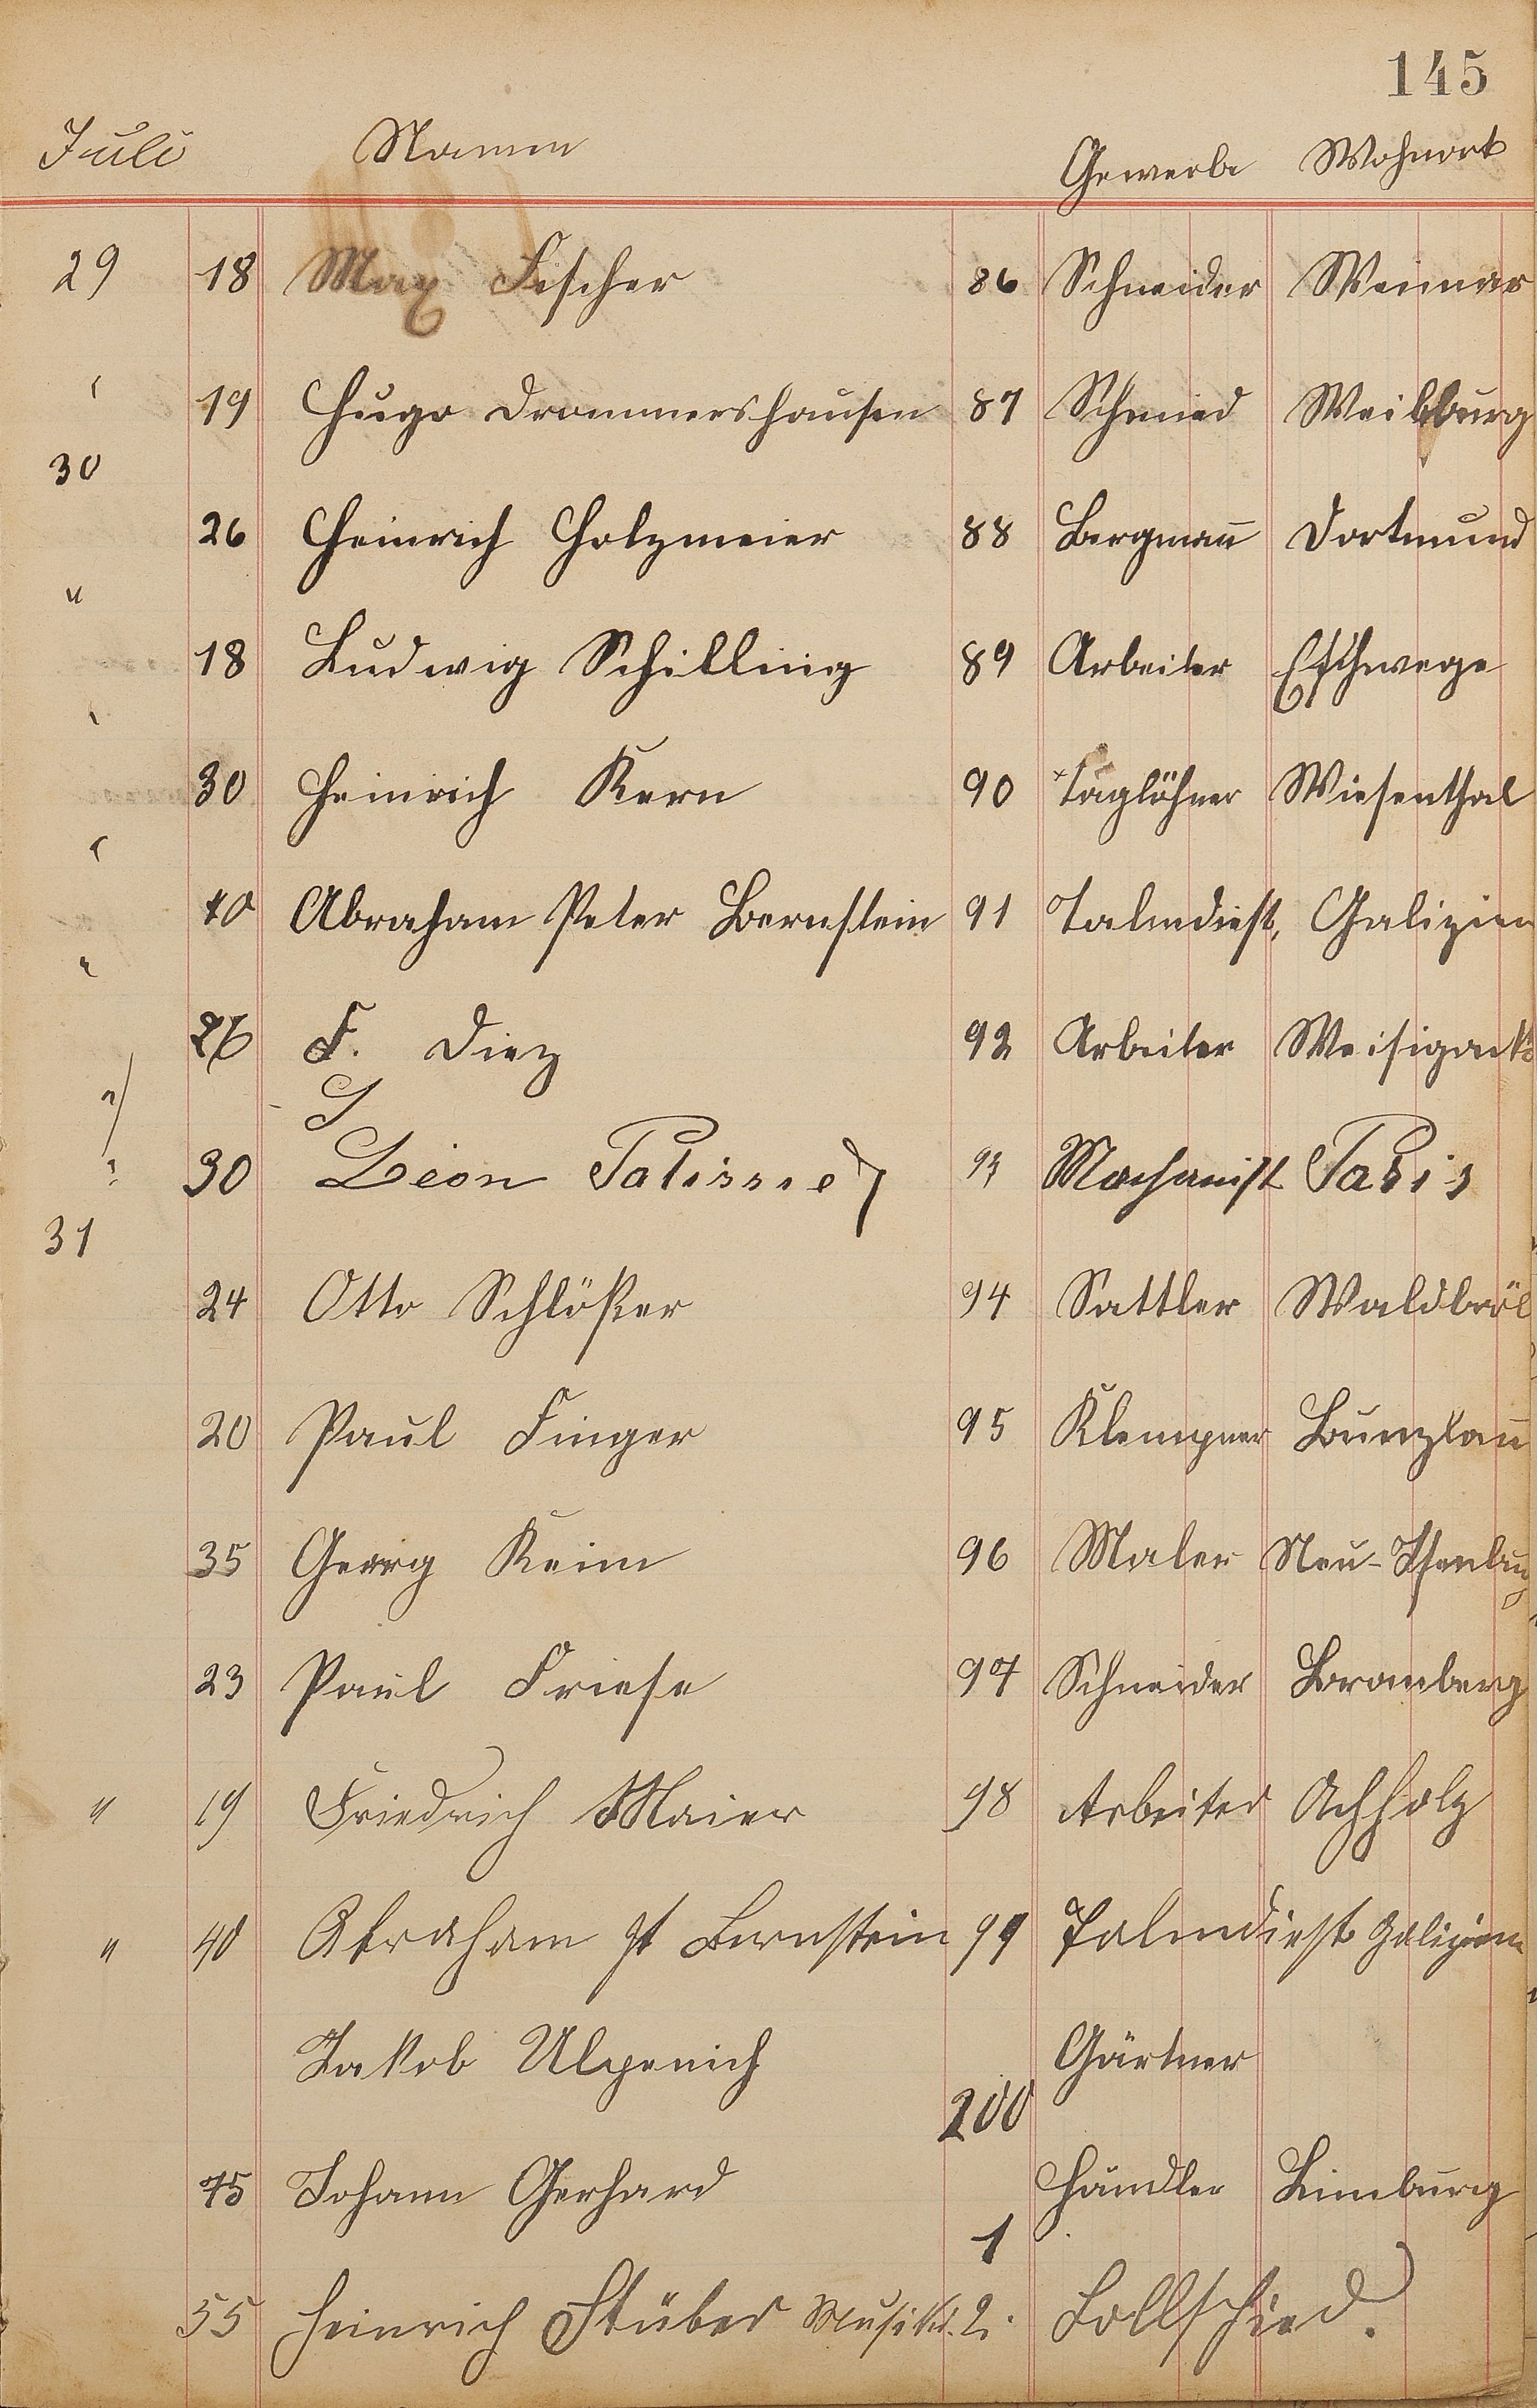 145
Juli Namen Gewerbe Wohnort
29 18 Max Fischer 86 Schneider Weimar
" 19 Hugo Drommershausen 87 Schmied Weilburg
30
26 Heinrich Holzmeier 88 Bergmann Dortmund
"
18 Ludwig Schilling 89 Arbeiter Eschwege
"
30 Heinrich Kern 90 Taglöhner Wiesenthal
"
40 Abraham Peter Bernstein 91 Talmdist, Galizien
"
26 F. Diez 92 Arbeiter
"
" 30 Léon Patissier 93 Mechanist Paris
31
24 Otto Schlößer 94 Sattler Waldbröl
20 Paul Finger 95 Klempner Bunzlau
35 Georg Keim 96 Maler Neu-Isenburg
23 Paul Friese 97 Schneider Bromberg
" 19 Friedrich Maier 98 Arbeiter Achholz
" 40 Abraham Pt Bernstein 99 Talmdist Galizien
Jakob Ulpenich Gärtner
200
75 Johann Gerhard Händler Limburg
1
55 Heinrich Stüber Musikt. 2. Lollschied.